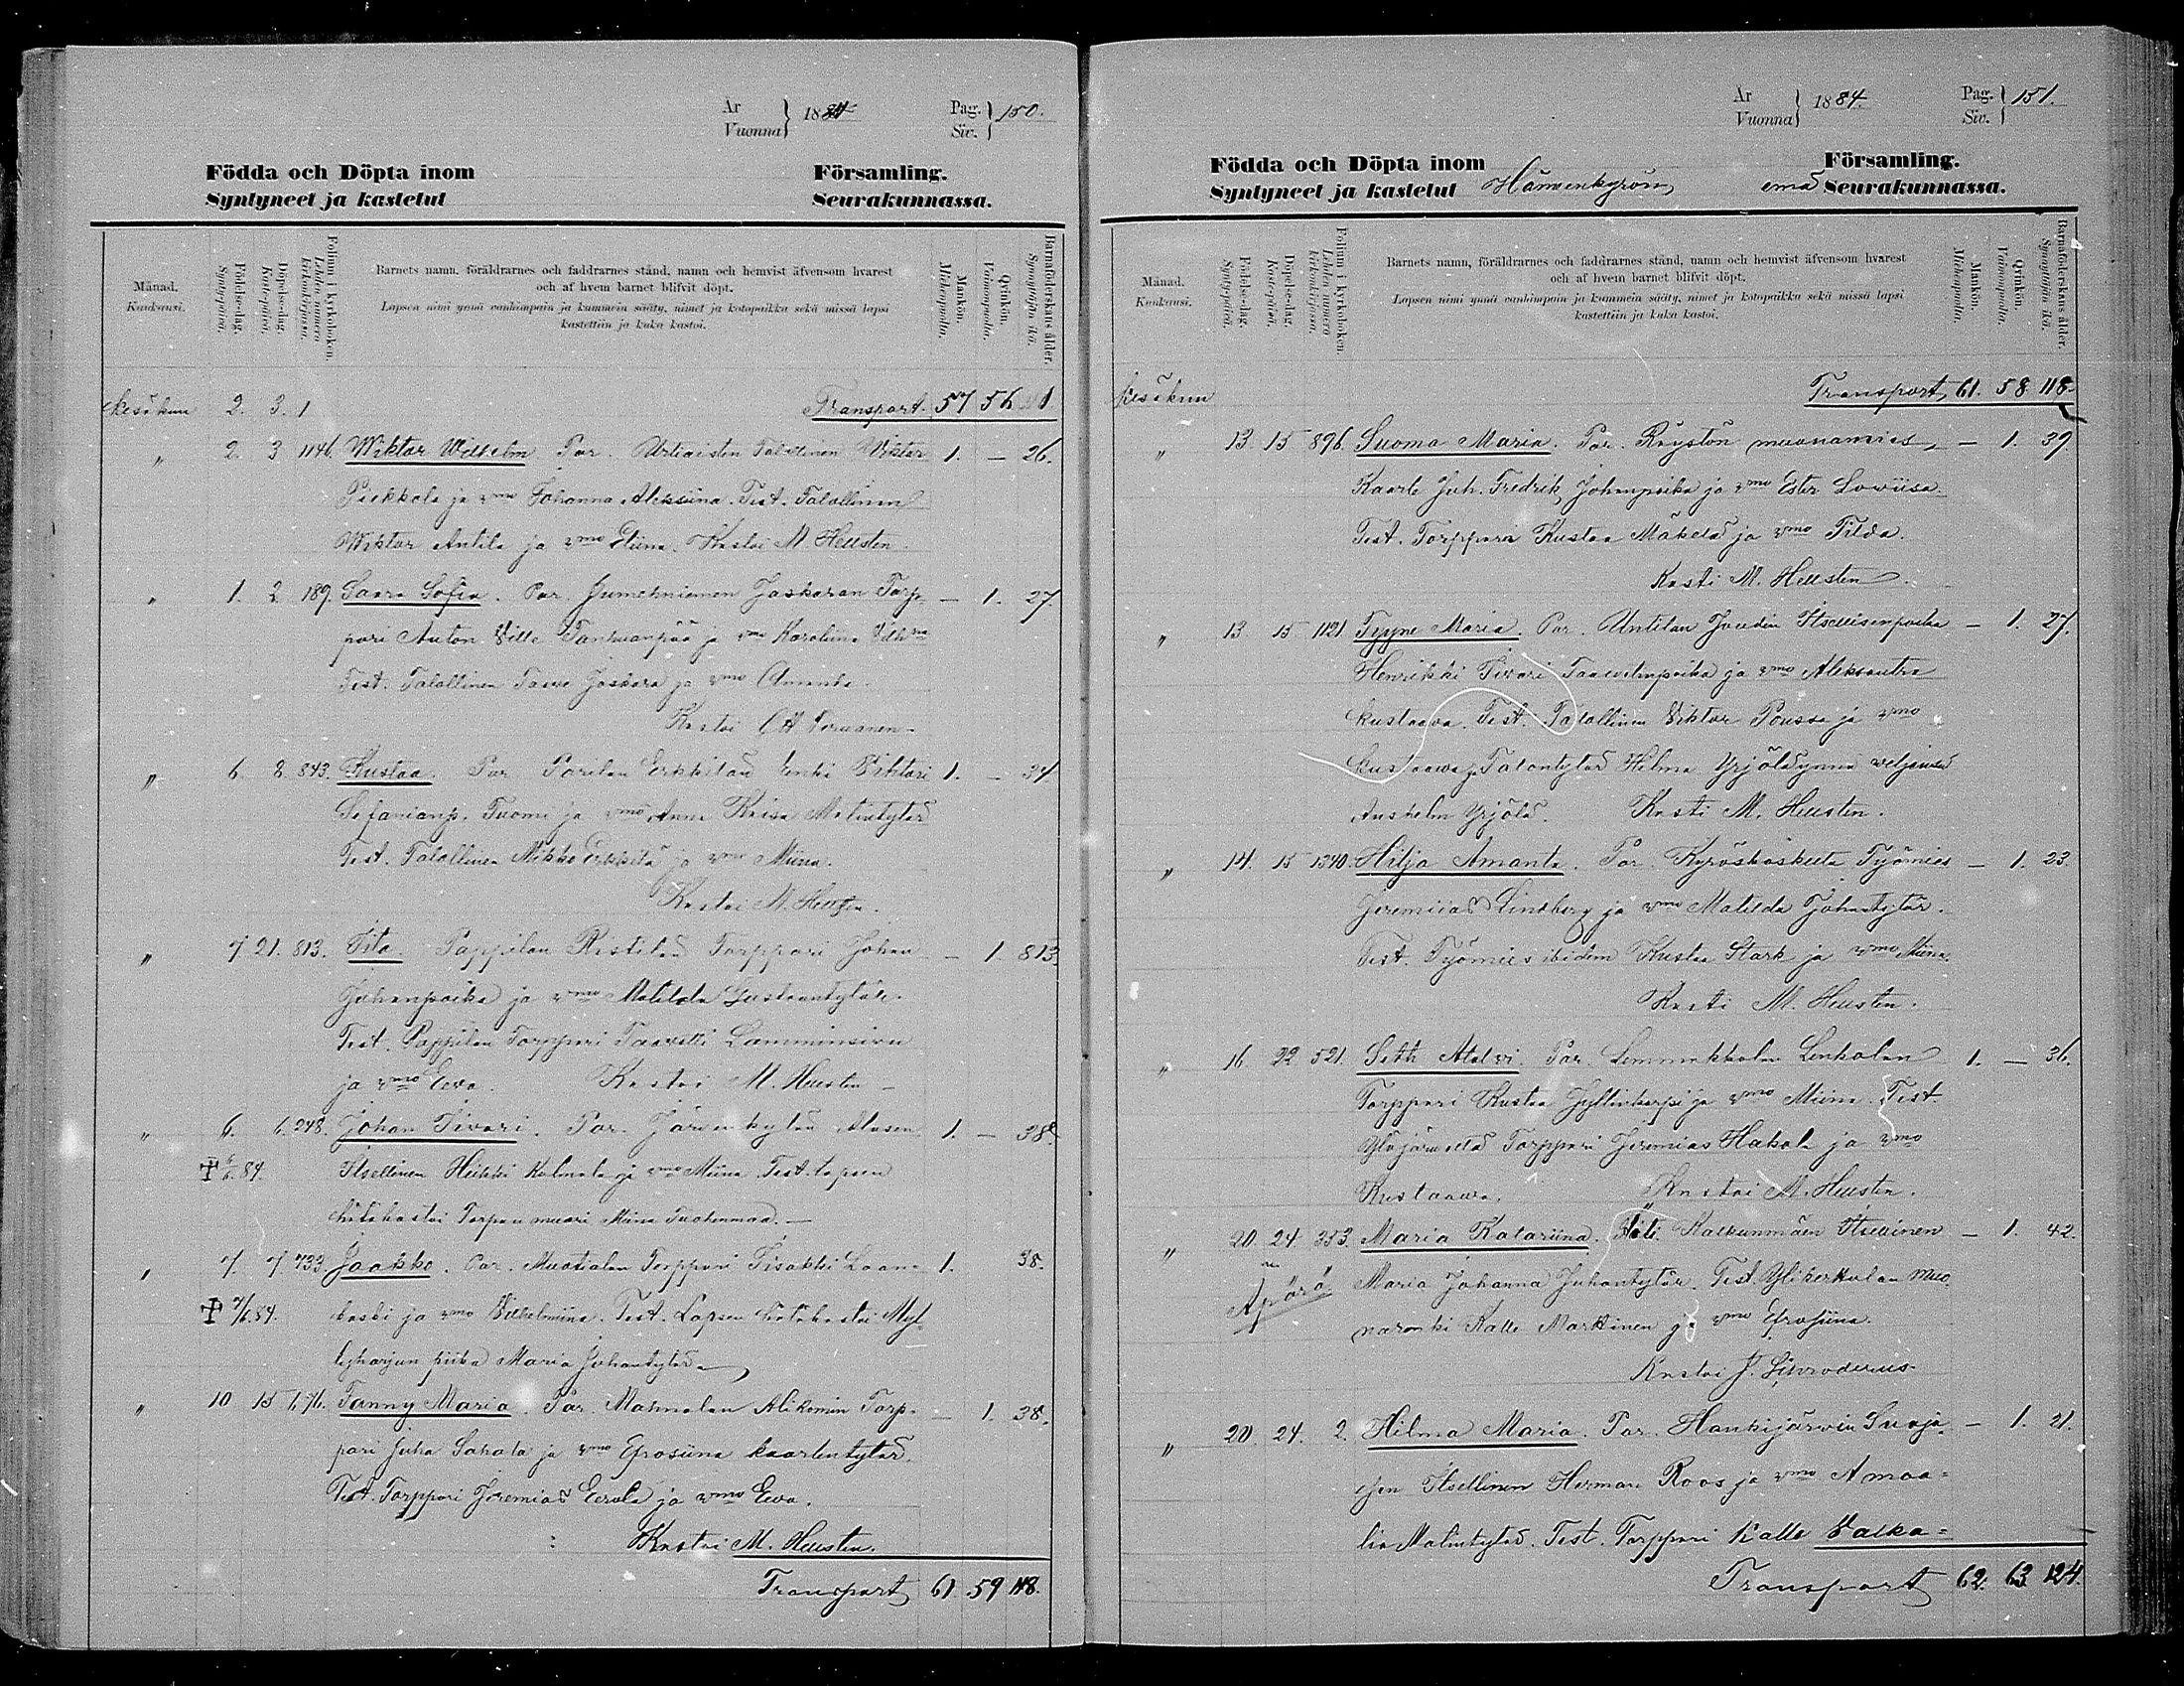 År
Vuonna } 1884 Pag.
Siv. } 150.
Födda och Döpta inom Församling.
Syntyneet ja kastetut Seurakunnassa.
Månad. Kuukausi.
Födelse-dag. Syntypäivä.
Döpelse-dag. Kastepäivä.
Folium i kyrkoboken. Lehden numero kirkonkirjassa.
Barnets namn, föräldrarnes och faddrarnes stånd, namn och hemvist äfvensom hvarest
och af hvem barnet blifvit döpt.
Lapsen nimi ynnä vanhimpain ja kummein sääty, nimet ja kotopaikka sekä missä lapsi
kastettiin ja kuka kastoi.
Mankön. Miehenpuolia.
Qvinkön. Vaimonpuolia.
Barnaföderskans ålder. Synnyttäjän ikä.
Kesäkuu 2. 3. 1 Transport. 57 56
" 2. 3 1146. Wiktor Wilhelm Par. Talollinen Viktor 1. — 26.
Pukkala ja vmo Johanna Aleksiina. Test. Talollinen
Wiktor Antila ja vmo Eliina. Kastoi M Hellsten.
" 1. 2. 189. Saara Sofia. Par. Jumehniemen Jaskaran Torp- — 1. 27.
pari Anton Ville ja vmo Karoliina
Test. Talollinen Jaskara ja vmo Amanda
Kastoi
" 6. 8. 843. Kustaa. Par Parilan Erkkilän Vihtori 1. — 34.
Sefanianp. Tuomi ja vmo Anna Kaisa Matintytär
Test. Talollinen Mikko Erkkilä ja vmo Miina.
Kastoi M. Hellsten.
" 7 21. 813. Tita. Pappilan Ristilän Torppari Johan — 1. 813.
Juhanpoika ja vmo Matilda Justaantytär.
Test. Pappilan Torppari Taavetti Lamminsivu
ja vmo Eeva. Kastoi M. Hellsten
" 6. 6. 248. Johan Iivari. Par. Järvenkylän Alasen 1. — 38.
✝ 6/6.84. Itsellinen Heikki Kalmala ja vmo Miina. Test. Lapsen
hätäkastoi Torpan muori Miina Tuohenmaa.—
" 7. 7 733. Jaakko. Par. Mustialan Torppari Iisakki Laan- 1. 38.
✝ 7/6.84. koski ja vmo Vilhelmiina. Test. Lapsen hätäkastoi Myl-
lyharjun piika Maria Juhantytär
" 10 15 Fanny Maria. Par. Mahnalan Alikomin Torp- — 1. 38.
pari Juha Sahala ja vmo Efrosiina Kaarlentytär.
Test. Torppari Jeremias Eerola ja vmo Eeva.
Kastoi M. Hellsten.
Transport 61. 59 118.
År
Vuonna } 1884. Pag.
Siv. } 151.
Födda och Döpta inom Församling.
Syntyneet ja kastetut Hämeenkyrön emä Seurakunnassa.
Månad. Kuukausi.
Födelse-dag. Syntypäivä.
Döpelse-dag. Kastepäivä.
Folium i kyrkoboken. Lehden numero kirkonkirjassa.
Barnets namn, föräldrarnes och faddrarnes stånd, namn och hemvist äfvensom hvarest
och af hvem barnet blifvit döpt.
Lapsen nimi ynnä vanhimpain ja kummein sääty, nimet ja kotopaikka sekä missä lapsi
kastettiin ja kuka kastoi.
Mankön. Miehenpuolia.
Qvinkön. Vaimonpuolia.
Barnaföderskans ålder. Synnyttäjän ikä.
Kesäkuu Transport 61. 58. 118.
" 13. 15 896. Suoma Maria. Par. Röystön muonamies — 1. 39.
Kaarle Juh. Fredrik Johanpoika ja vmo Ester Lowiisa.
Test. Torppari Kustaa Mäkelä ja vmo Tilda.
Kasti M. Hellsten.
" 13. 15 1121. Tyyne Maria. Par. Anttilan Itsellisenpoika — 1. 27.
Henrikki Iivari Taavetinpoika ja vmo Aleksantra
Kustaava. Test. Talollinen Viktor Poussa ja vmo
Kustaava ja Talontytär Hilma Yrjölä ynnä veljensä
Anshelm Yrjölä. Kasti M. Hellsten.
" 14. 15 1340. Hilja Amanta. Par. Kyröskoskella Työmies — 1. 23
Jeremiias Lindberg ja vmo Matilda Johantytär.
Test. Työmies ibidem Kustaa Stark ja vmo Miina
Kasti M. Hellsten.
" 16. 22 521. Seth Alalvi. Par. Lemmakkalan Lenholan 1. — 36.
Torppari Kustaa Hyllinkorpi ja vmo Miina. Test.
Ylöjärveltä Torppari Jeremias Hakala ja vmo
Kustaawa. Kastoi M. Hellsten.
" 20. 24. 353. Maria Katariina. Äiti. Kalkunmäen Itsellinen — 1. 42.
Äpärä. Maria Johanna Juhontytär. Test. Ylikerkolan muo
narenki Kalle Markkinen ja vmo Efrosiina.
Kastoi J. Schroderus.
" 20. 24. 2. Hilma Maria. Par. Hankijärwin Suoja- — 1. 21.
sen Itsellinen Herman Roos ja vmo Amaa=
lia Malintytär. Test. Torppari Kalle Valka=
Transport 62. 63 124.